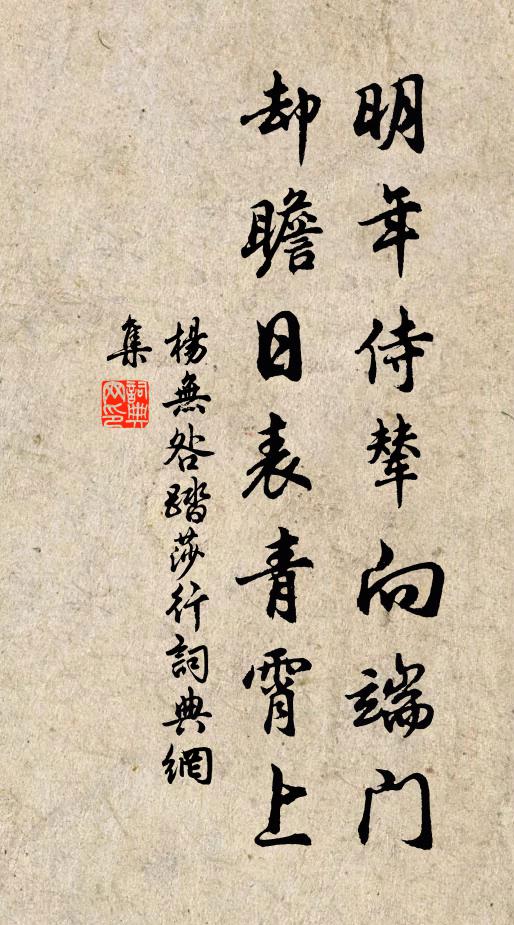 明年侍輦向端門
却瞻日表青霄上
楊無咎踏莎行詞典網
集
詞典網印